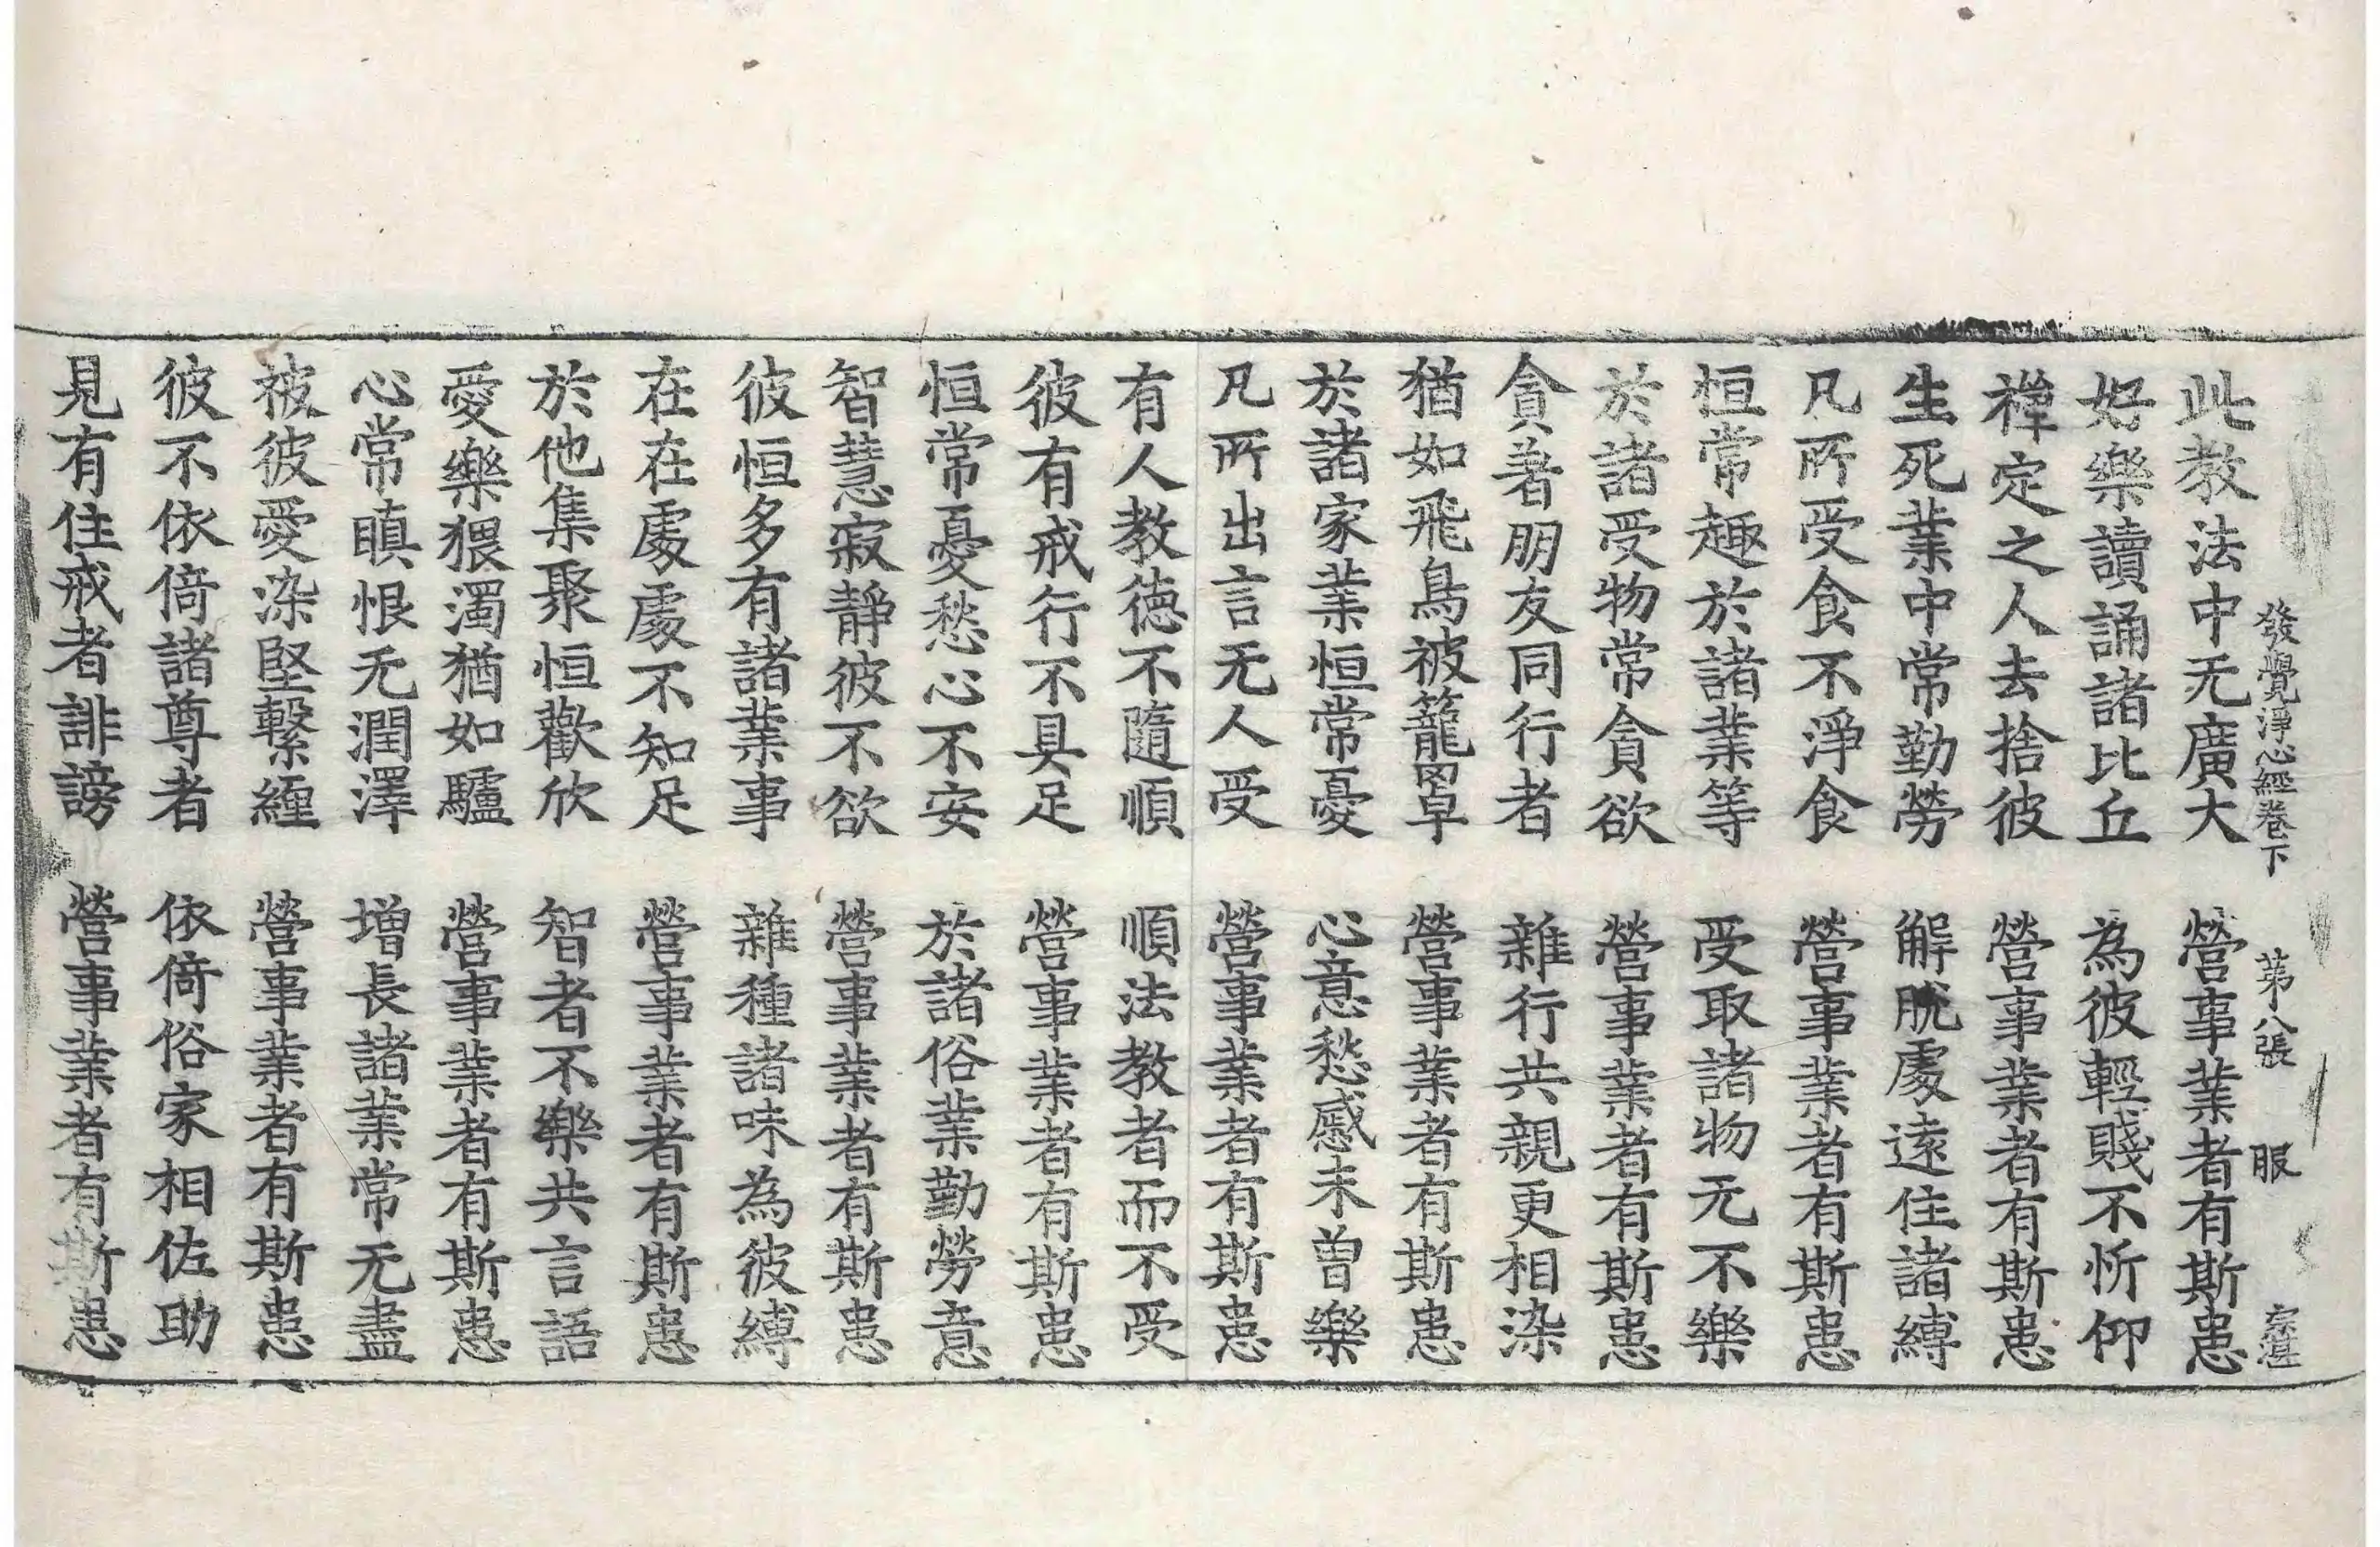 發覺淨心經卷下 第八張 服
此教法中无廣大 營事業者有斯患
好樂讀誦諸比丘 為彼輕賤不忻仰
禪定之人去捨彼 營事業者有斯患
生死業中常勤勞 解脫處遠住諸縛
凡所受食不淨食 營事業者有斯患
恒常趣於諸業等 受取諸物无不樂
於諸受物常貪欲 營事業者有斯患
貪著朋友同行者 雜行共親更相染
猶如飛鳥被籠罩 營事業者有斯患
於諸家業恒常憂 心意愁慼未曾樂
凡所出言无人受 營事業者有斯患
有人教德不隨順 順法教者而不受
彼有戒行不具足 營事業者有斯患
恒常憂愁心不安 於諸俗業勤勞意
智慧寂靜彼不欲 營事業者有斯患
彼恒多有諸業事 雜種諸味為彼縛
在在處處不知足 營事業者有斯患
於他集聚恒歡欣 智者不樂共言語
愛樂猥濁猶如驢 營事業者有斯患
心常瞋恨无潤澤 增長諸業常无盡
被彼愛染堅繫纏 營事業者有斯患
彼不依倚諸尊者 依倚俗家相佐助
見有住戒者誹謗 營事業者有斯患